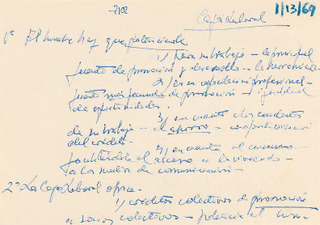 -2102
Caja Laboral
1/13/69
1º El hombre hay que potenciarle
1/ por su trabajo - la principal
fuente de promoción y desarrollo - la herencia
2/ en su capacitación profesional -
fuente más fecunda de promoción - igualdad
de oportunidades.
3/ en cuanto a los resultados
de su trabajo - el ahorro - cooperativización
del crédito.
4/ en cuanto al consumo
facilitándole el acceso a la vivienda -
a los medios de comunicación -
2º La Caja Laboral ofrece -
1/ créditos colectivos de promoción
a socios colectivos - potencia el